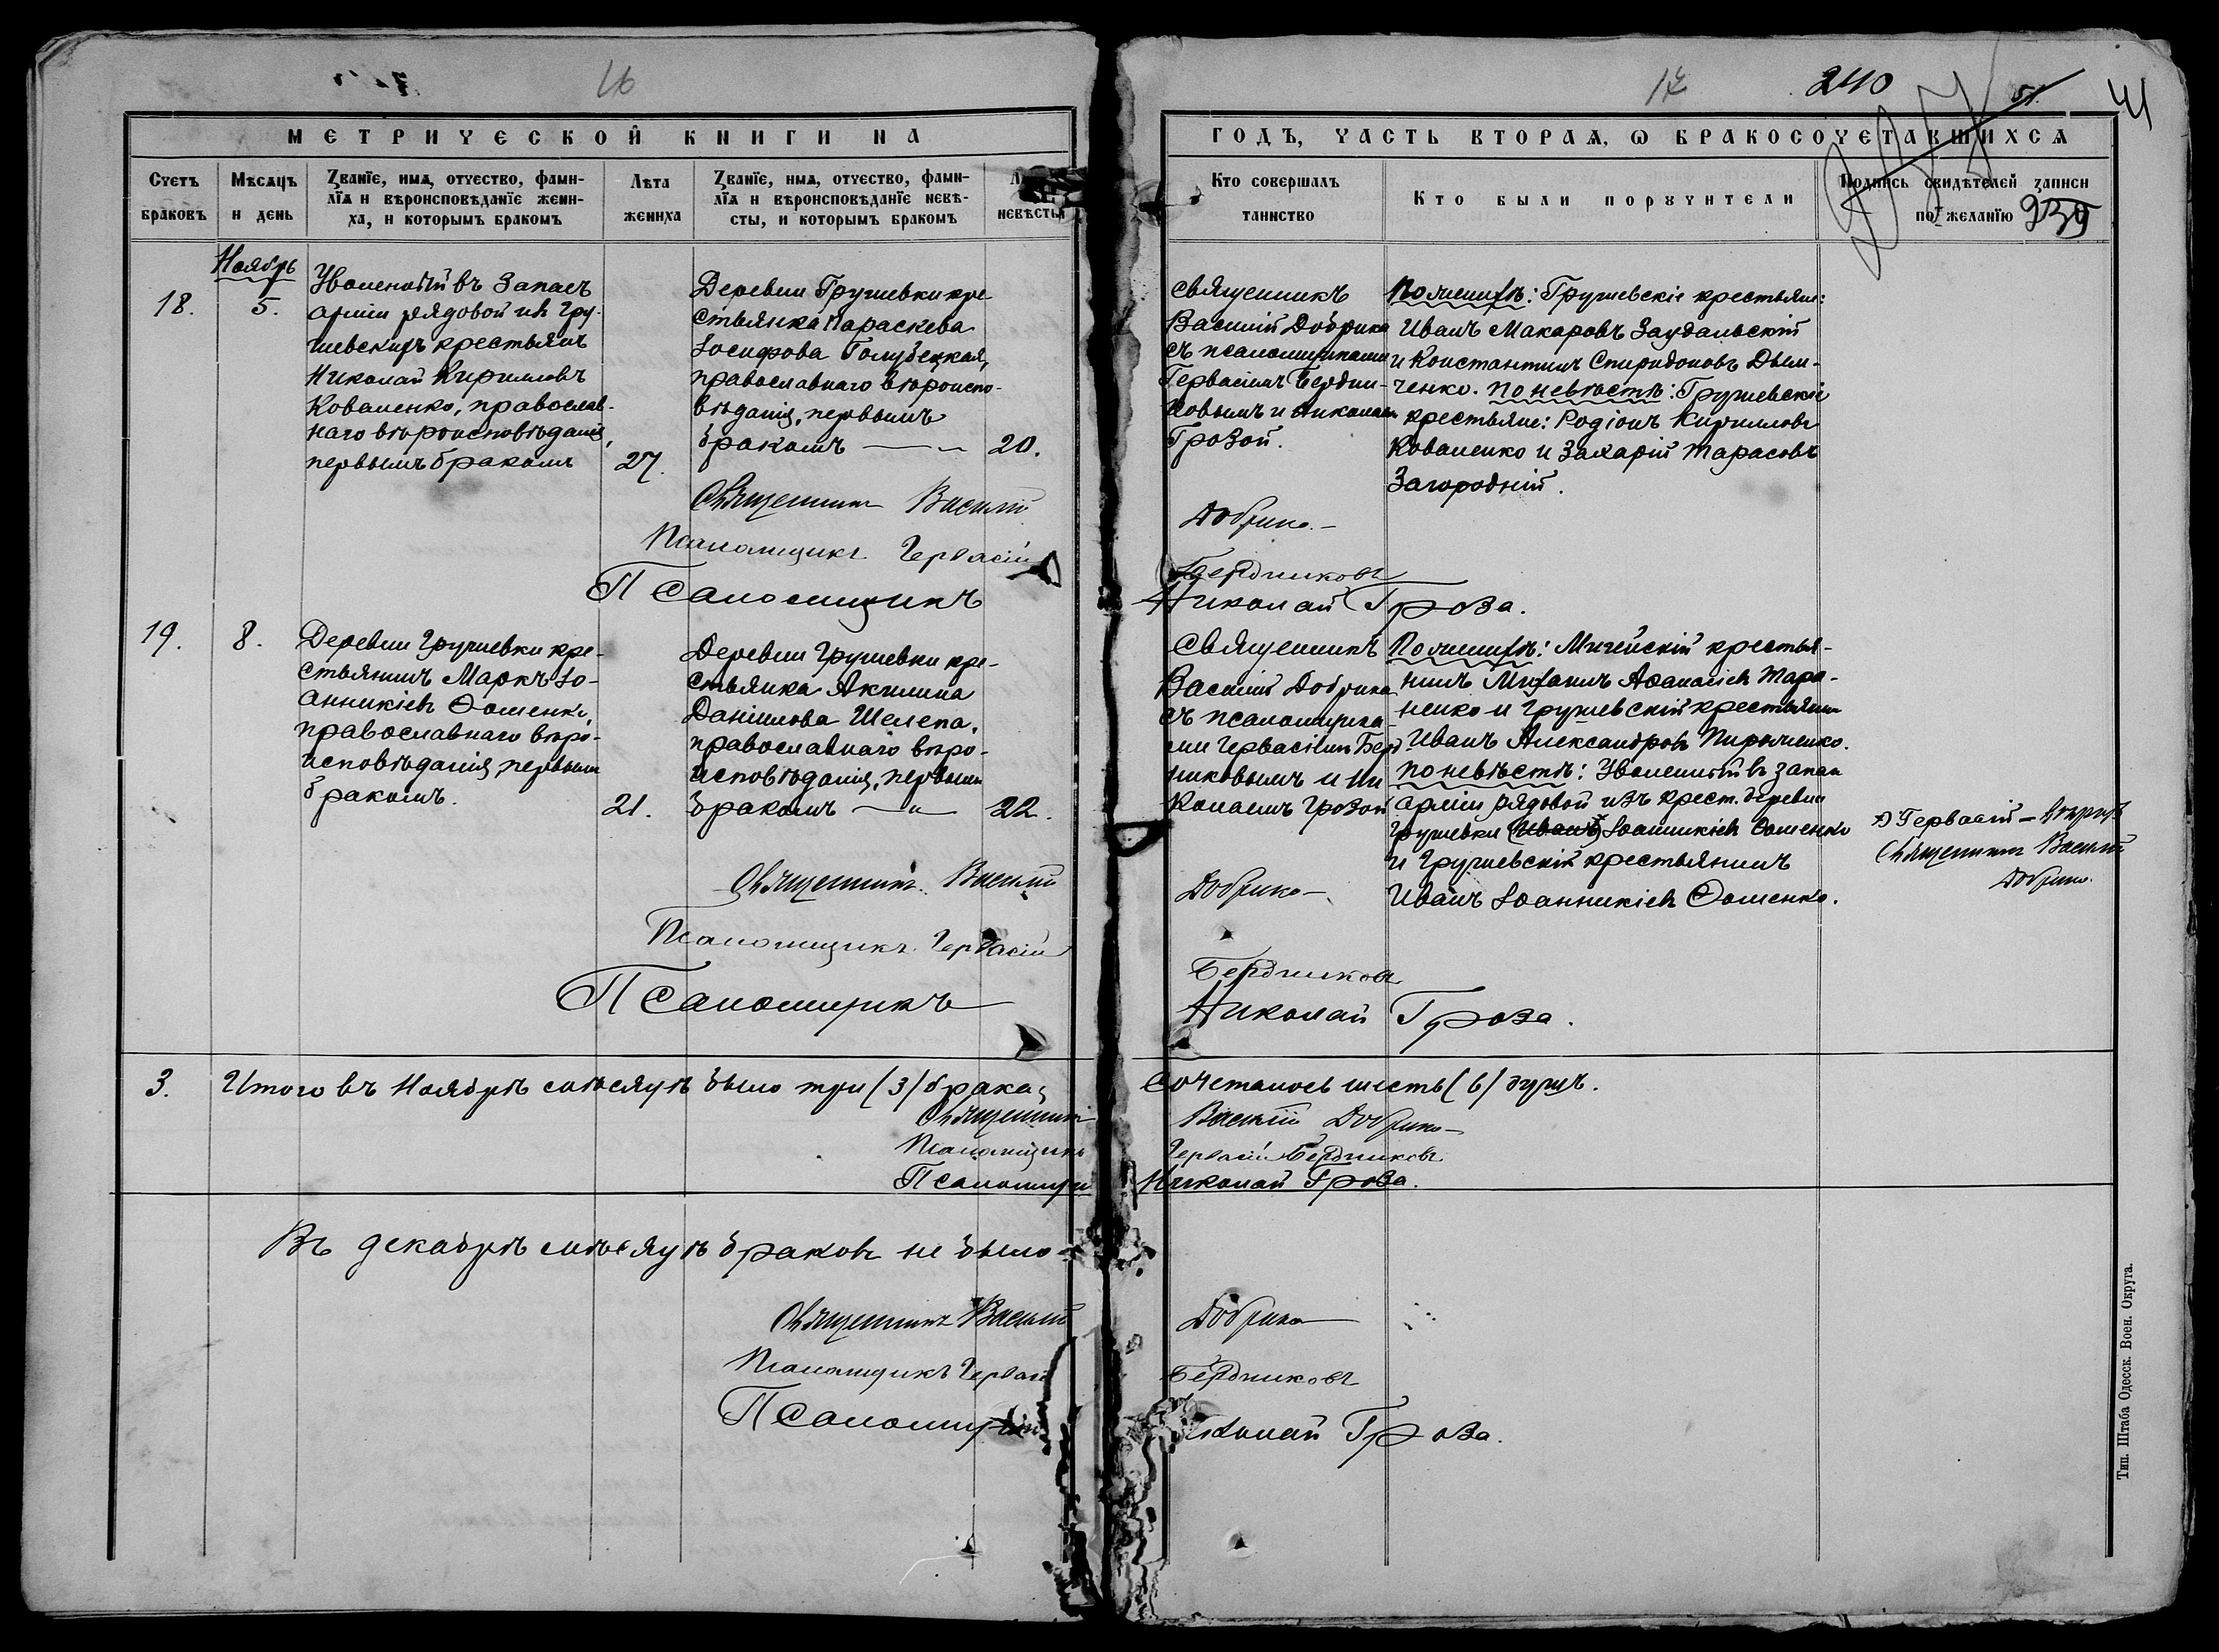 16
17
240
51.
41
МЕТРИЧЕСКОЙ КНИГИ НА
ГОДЪ, ЧАСТЬ ВТОРАЯ, Ѡ БРАКОСОЧЕТАВШИХСЯ
Счетъ браковъ
Мѣсяцъ и день
Званїе, имя, отчество, фами-
лїя и вѣроисповѣданїе жени-
ха, и которымъ бракомъ
Лѣта жениха
Званїе, имя, отчество, фами-
лїя и вѣроисповѣданїе невѣ-
сты, и которымъ бракомъ
невѣсты
Кто совершалъ
таинство
Кто были порꙋчители
Подпись свидѣтелей записи
по желанїю
239
Ноябрь
18.
5.
Уволенный въ Запасъ
арміи рядовой изъ Гру-
шевскихъ крестьянъ
Николай Кирилловъ
Коваленко, православ-
наго вѣроисповѣданія,
первымъ бракомъ
27.
Деревни Грушевки кре-
стьянка Параскева
Іосифова Голубецкая,
православнаго вѣроиспо-
вѣданія, первымъ
бракомъ — „ 20.
Священникъ
Василій Добрика
съ псаломщиками
Гервасіемъ Бердни-
ковымъ и Николаемъ
Грозой.
По женихѣ: Грушевскіе крестьяне:
Иванъ Макаровъ Заудальскій
и Константинъ Спиридоновъ Дьям-
ченко. По невѣстѣ: Грушевскіе
крестьяне: Родіонъ Кирилловъ
Коваленко и Захарій Тарасовъ
Загородній.
Священникъ Василій Добрика
Псаломщикъ Гервасій Бердниковъ
Псаломщикъ Николай Гроза.
19.
8.
Деревни Грушевки кре-
стьянинъ Маркъ Іо-
анникіевъ Ѳоменко,
православнаго вѣро-
исповѣданія, первымъ
бракомъ.
21.
Деревни Грушевки кре-
стьянка Акилина
Даніилова Шелепа,
православнаго вѣро-
исповѣданія, первымъ
бракомъ — „ 22.
Священникъ
Василій Добрика
съ псаломщика-
ми Гервасіемъ Берд-
никовымъ и Ни
колаемъ Грозой
По женихѣ: Мигейскій крестья-
нинъ Михаилъ Аѳанасіевъ Тара-
ненко и Грушевскій крестьянинъ
Иванъ Александровъ
По невѣстѣ: Уволенный въ запасъ
арміи рядовой изъ крест. деревни
Грушевки (Иванъ) Іоанникіевъ Ѳоменко
и Грушевскій крестьянинъ
Иванъ Іоанникіевъ Ѳоменко.
Гервасій —
Священникъ Василій
Добрика.
Священникъ Василій Добрика
Псаломщикъ Гервасій Бердниковъ
Псаломщикъ Николай Гроза.
3. Итого въ Ноябрѣ мѣсяцѣ было три (3) брака; сочеталось шесть (6) душъ.
Священникъ Василій Добрика
Псаломщикъ Гервасій Бердниковъ
Псаломщикъ Николай Гроза.
Въ декабрѣ мѣсяцѣ браковъ не было.
Священникъ Василій Добрика
Псаломщикъ Гервасій Бердниковъ
Псаломщикъ Николай Гроза.
Тип. Штаба Одесск. Воен. Округа.